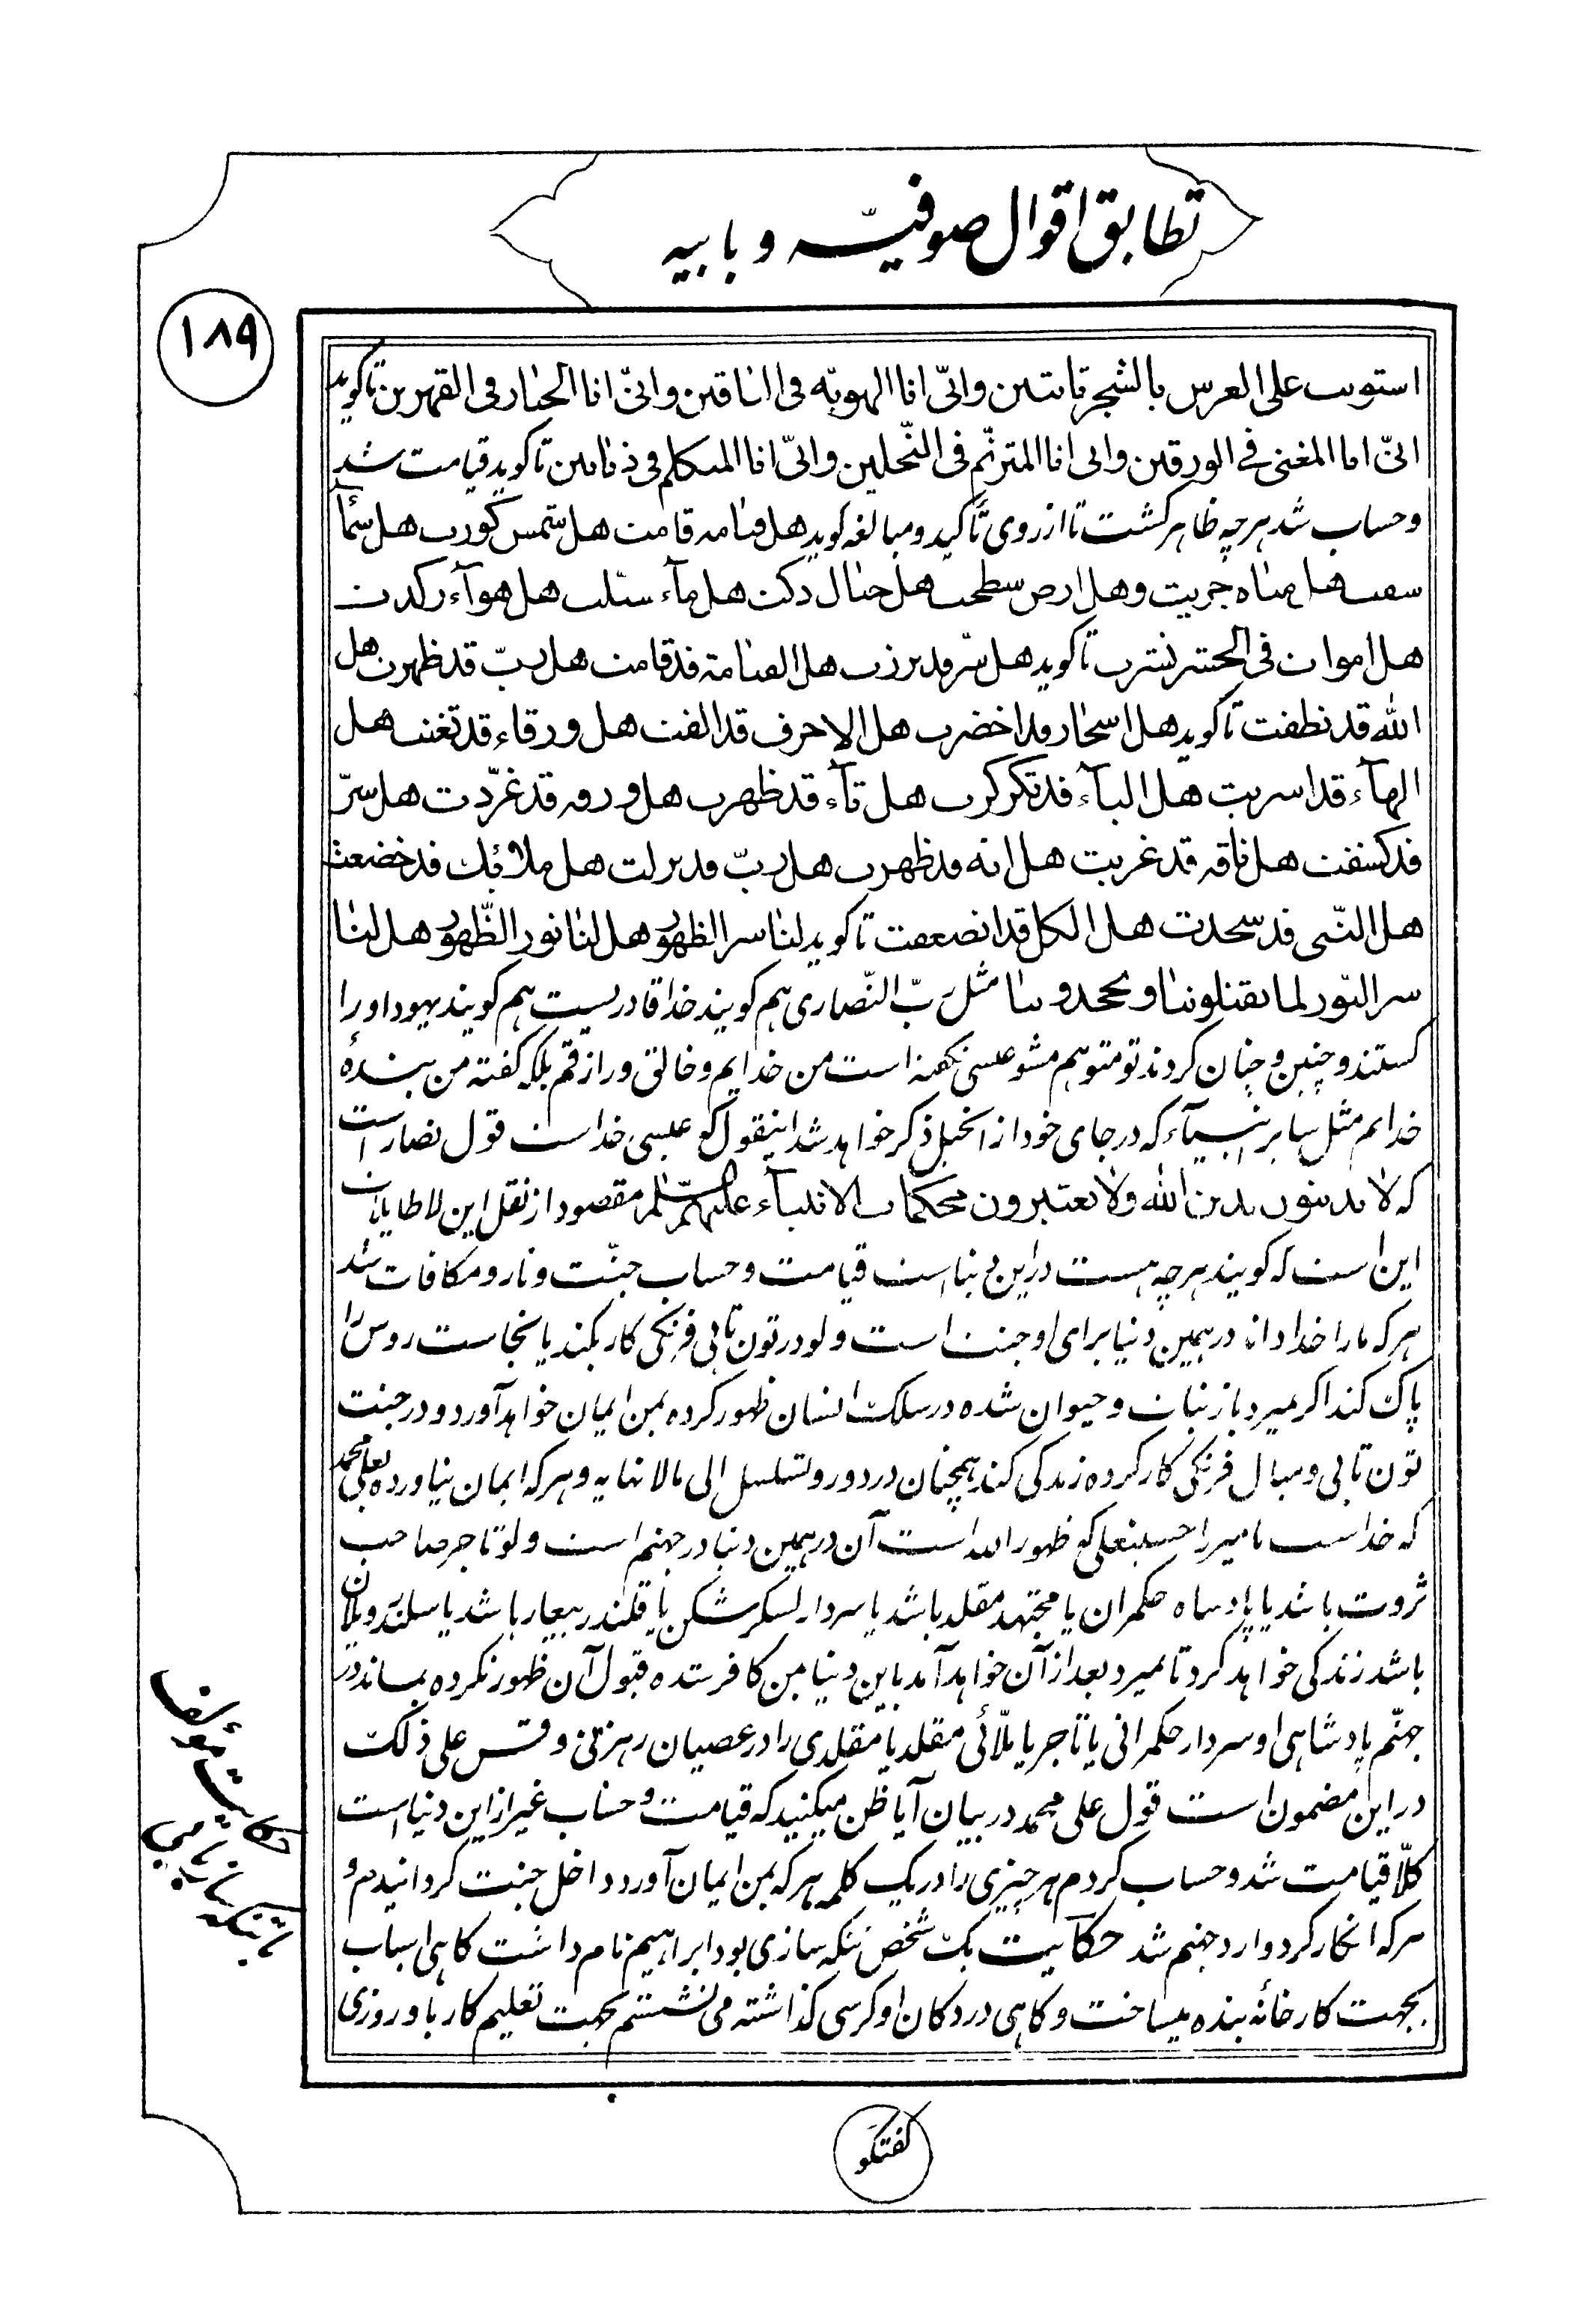 تطابق اقوال صوفیّه و بابیه
۱۸۹
استوت علی العرش بالشجرتابتین وانّی انا الهویّه فی الناقین وانّی انا الجبار فی القمرین تا کوید
انّی انا المغنی فی الورقین وانی انا المترنّم فی النّحلین وانّی انا المتکلم فی ذناس تا کوید قیامت شد
و حساب شد هر چه ظاهر کشت تا از روی تأکید و مبالغه کوید هل قیامه قامت هل شمس کورت هل سمآ
هل میاه جریت و هل ارض سطحت هل جبال دکت هل مآء سیّلت هل هوآء رکدت
هل اموات فی الحشر نشرت تا کوید هل سرّ قد برزت هل القیامة قد قامت هل ربّ قد ظهرت هل
الله قد نطقت تا کوید هل اشجار قد اخضرت هل الاحرف قد الفت هل ورقاء قد تغنت هل
الهآء قد اسریت هل البآء قد تکرکرت هل تآء قد ظهرت هل ورقه قد غرّدت هل سرّ
قد کشفت هل ناقه قد غربت هل انه قد ظهرت هل ربّ قد نزلت هل ملائک قد خضعت
هل النّبی قد سجدت هل الکل قد انصعقت تا کوید لنا سر الظهور هل لنا نور الظّهور هل لنا
سر النّور لما یقتلوننا و یجحدوننا مثل ربّ النّصاری هم کویند خدا قادر نیست هم کویند یهود او را
کشتند و چنین و چنان کردند تو متوهم مشو عیسی نگفته است من خدایم و خالق و رازقم بلکه گفته من بنده
خدایم مثل سایر انبیآء که در جای خود از انجیل ذکر خواهد شد اینقول که عیسی خداست قول نصاراست
که لا یدینون بدین الله ولا یعتبرون محکمات الانبیآء علیهم السّلم مقصود از نقل این لاطایلات
این است که کویند هر چه هست در این دنیا است قیامت و حساب جنّت و نار و مکافات شد
هر که ما را خدا داند در همین دنیا برای او جنت است ولو در تون تابی فرنکی کار بکند یا نجاست روس را
پاک کند اکر میرد باز نبات و حیوان شده در سلک انسان ظهور کرده بمن ایمان خواهد آورد و در جنت
تون تابی و مبال فرنکی کار کرده زندکی کند همچنان در دور و تسلسل الی مالانهایه و هر که ایمان نیاورده بعلی محمد
که خداست یا میرزا حسینعلی که ظهور الله است آن در همین دنیا در جهنم است ولو تاجر صاحب
ثروت باشد یا پادشاه حکمران یا مجتهد مقلد باشد یا سردار لشکر شکن یا قلندر بیعار باشد یا
باشد زندکی خواهد کرد تا نمیرد بعد از آن خواهد آمد باین دنیا بمن کافر شده قبول آن ظهور نکرده بماند در
جهنّم پادشاهی او سردار حکمرانی یا تاجر یا ملّائی مقلد یا مقلدی را در عصیان رهزنی و قس علی ذلک
در این مضمون است قول علی محمد در بیان آیا ظن میکنید که قیامت و حساب غیر از این دنیا است
کلّا قیامت شد و حساب کردم هر چیزی را در یک کلمه هر که بمن ایمان آورد داخل جنت کردانیدم و
هر که انکار کرد وارد جهنم شد حکایت یک شخص تنکه سازی بود ابراهیم نام داشت کاهی اسباب
بجهت کارخانه بنده میساخت و کاهی در دکان او کرسی کذاشته می نشستم بجهت تعلیم کار باو روزی
حکایت مؤلف
با تنکه ساز بابی
کفتکو